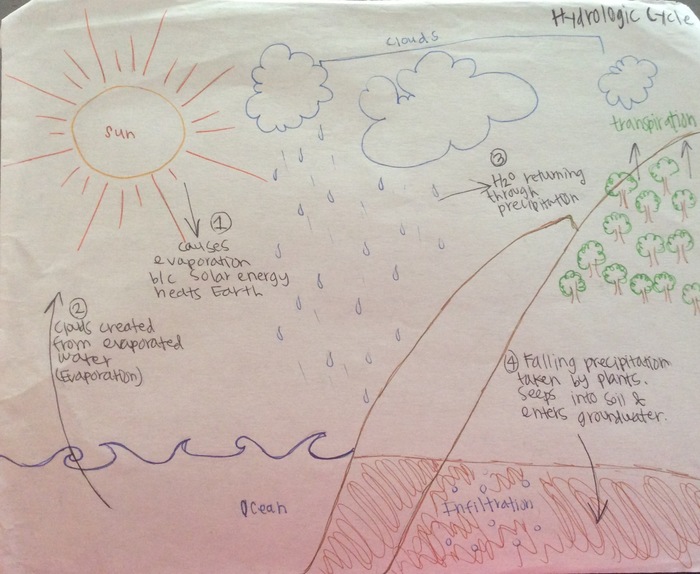 Hydrologic Cycle
clouds
sun
transpiration
③
H2O returning
through
precipitation
①
causes
evaporation
b/c solar energy
heats Earth
②
Clouds created
from evaporated
water
(Evaporation)
④ Falling precipitation
taken by plants.
Seeps into soil &
enters groundwater.
Ocean
Infiltration